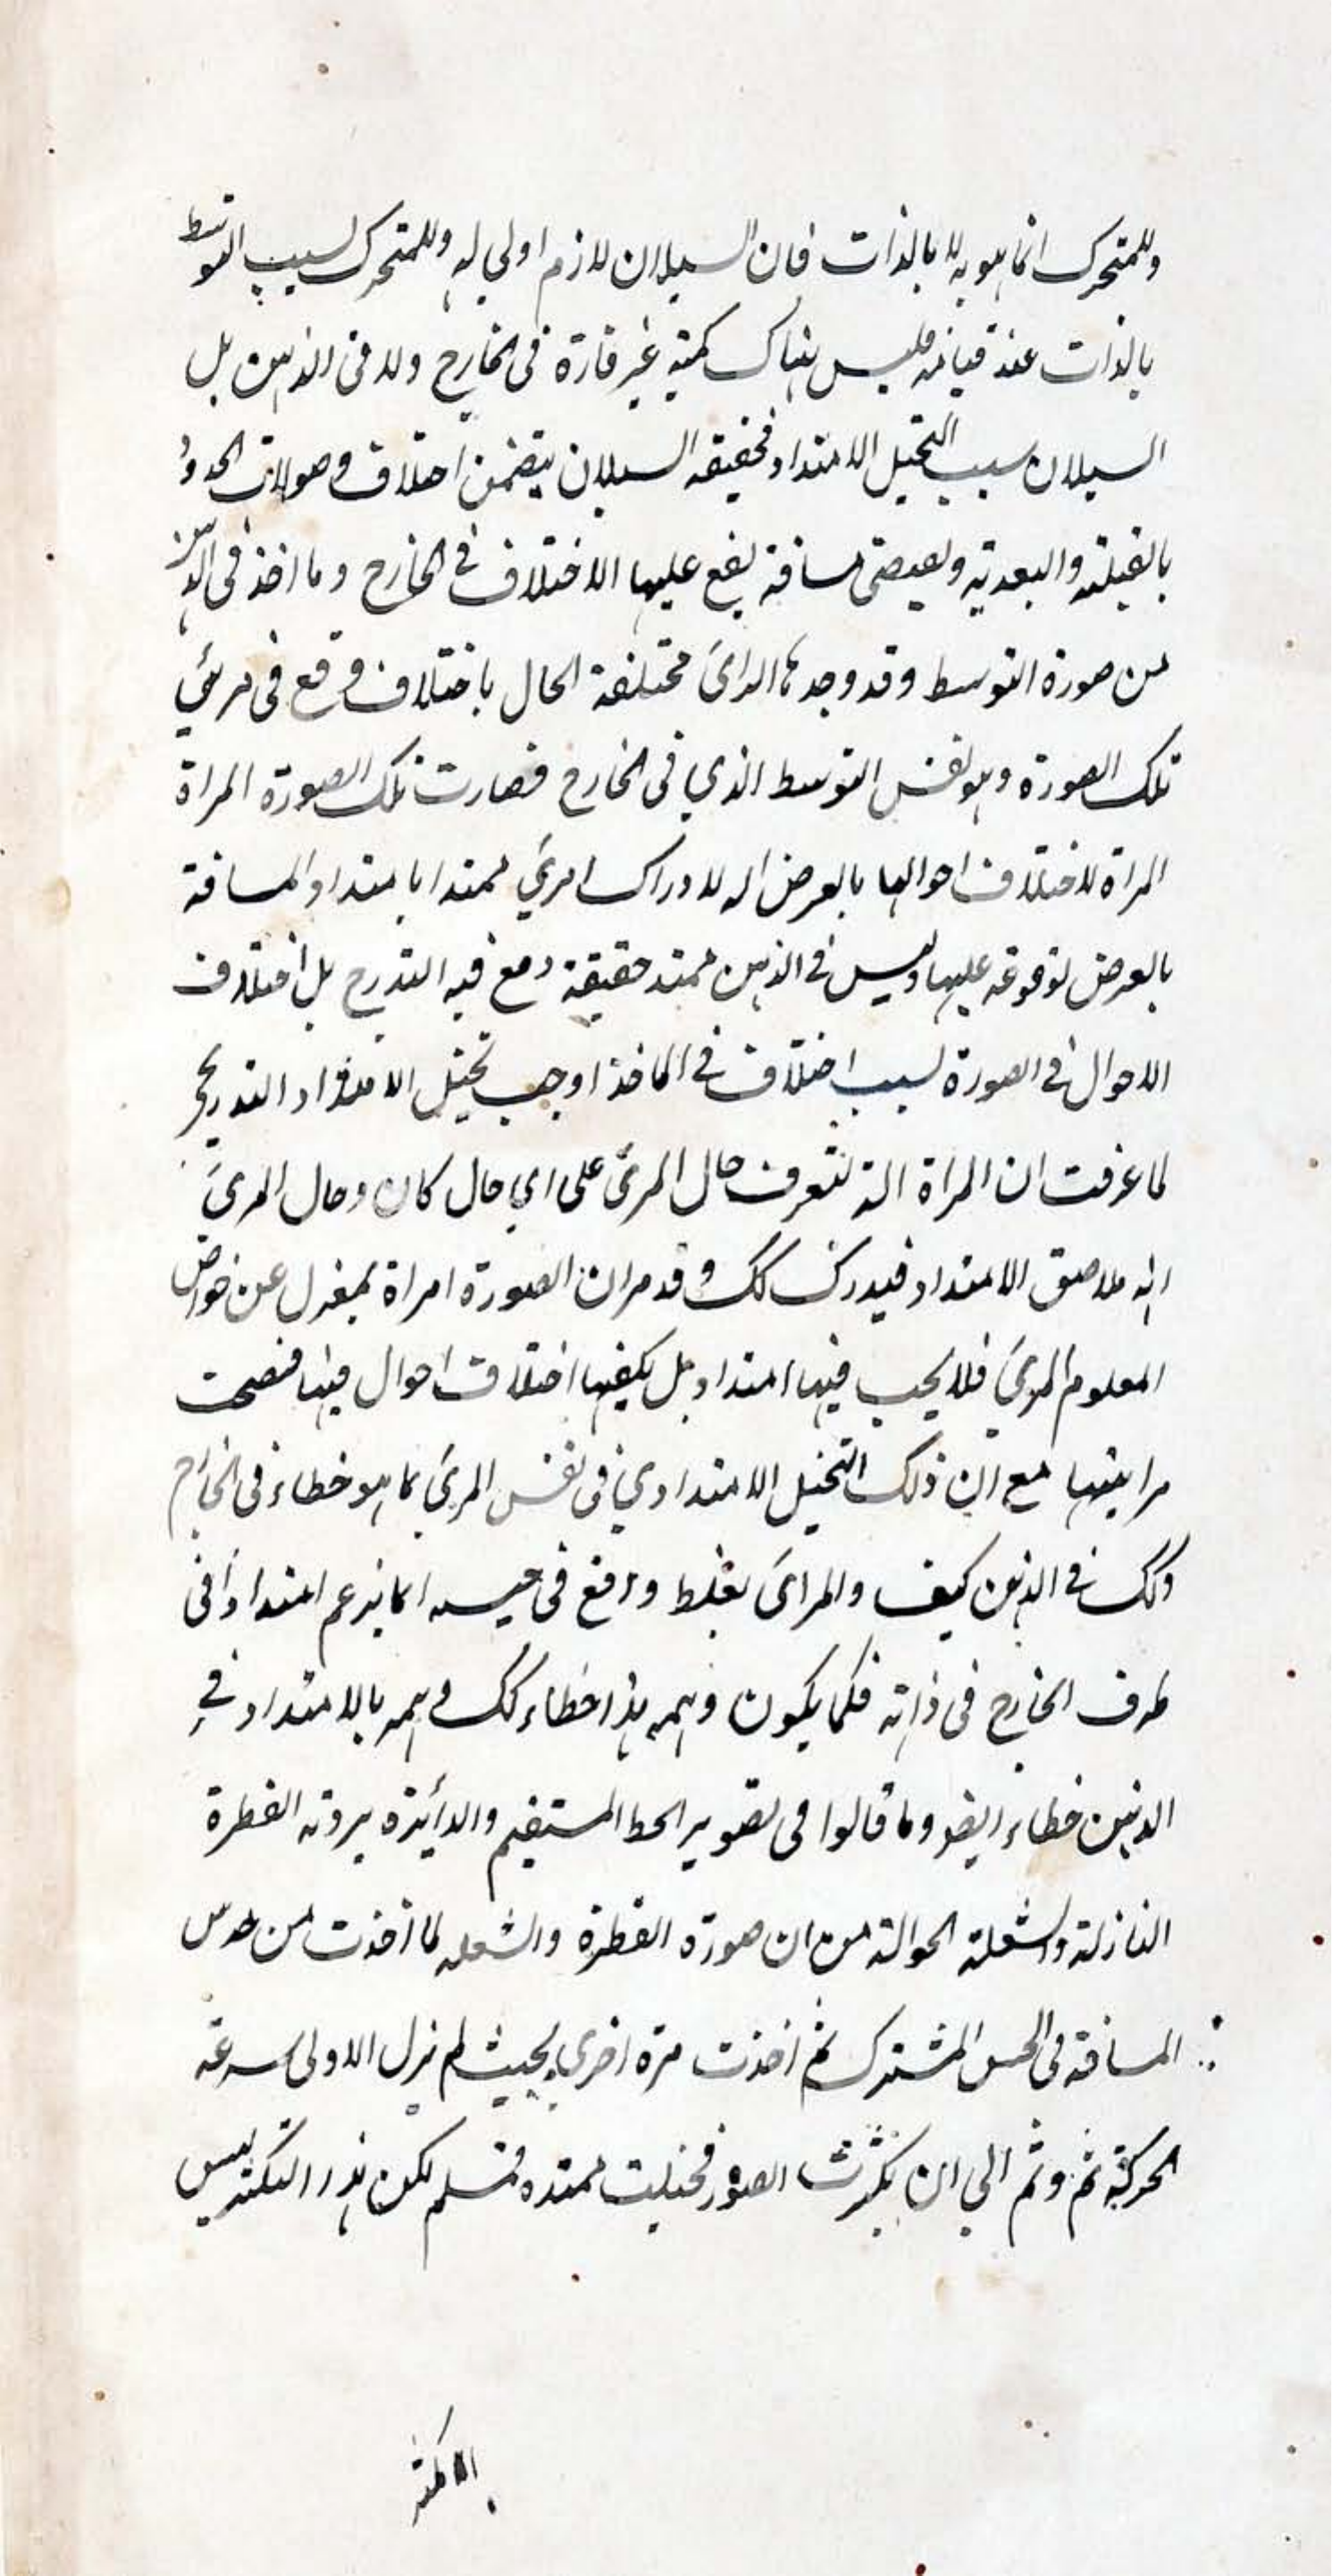 وللمتحرك انما هو به لا بالذات فان السيلان لازم اولي له وللمتحرك لسبب التوسط
بالذات عند قيامه فليس هناك كمية غير قارة في الخارج ولا في الذهن بل
السيلان سبب التخيل الامتداد فحقيقة السيلان يتضمن اختلاف وصولات الحدود
بالقبلية والبعدية ويقتضي مسافة يقع عليها الاختلاف في الخارج وما اخذ في الذهن
من صورة التوسط وقد وجدها الرائ مختلفة الحال باختلاف وقع في مرئي
تلك الصورة وهو نفس التوسط الذي في الخارج فصارت تلك الصورة المراة
المراة لاختلاف احوالها بالعرض اله لادراك امرئ ممتدا بامتداد المسافة
بالعرض لوقوعه عليها وليس في الذهن ممتد حقيقة وقع فيه التدرج بل اختلاف
الاحوال في الصورة لسبب اختلاف في الماخذ اوجب تخيل الامتداد التدريجي
لما عرفت ان المراة الة لتعرف حال المرئ على اي حال كان وحال المرئ
انه ملاصق الامتداد فيدرك كك وقد مر ان الصورة امراة بمعزل عن خواص
المعلوم المرئ فلا يجب فيها امتداد بل يكفيها اختلاف احوال فيها فتصحت
مرايتها مع ان ذلك التخيل الامتدادي في نفس المرئ بما هو خطاء في الخارج
وكك في الذهن كيف والمرائ بغلط واقع في حسه انما يزعم امتدادا في
طرف الخارج في ذاته فكما يكون وهمه هذا خطاء كك وهمه بالامتداد في
الذهن خطاء ايضو وما قالوا في تصوير الخط المستقيم والدائرة برؤية القطرة
النازلة والشعلة الجوالة من ان صورة القطرة والشعله لما اخذت من حدس
المسافة في الحس المشترك ثم اخذت مرة اخرى بحيث لم يزل الاولى لسرعة
الحركة ثم وثم الي ان تكثرت الصور فخيلت ممتده فمسلم لكن هذا التكثر ليس
الا كثرة